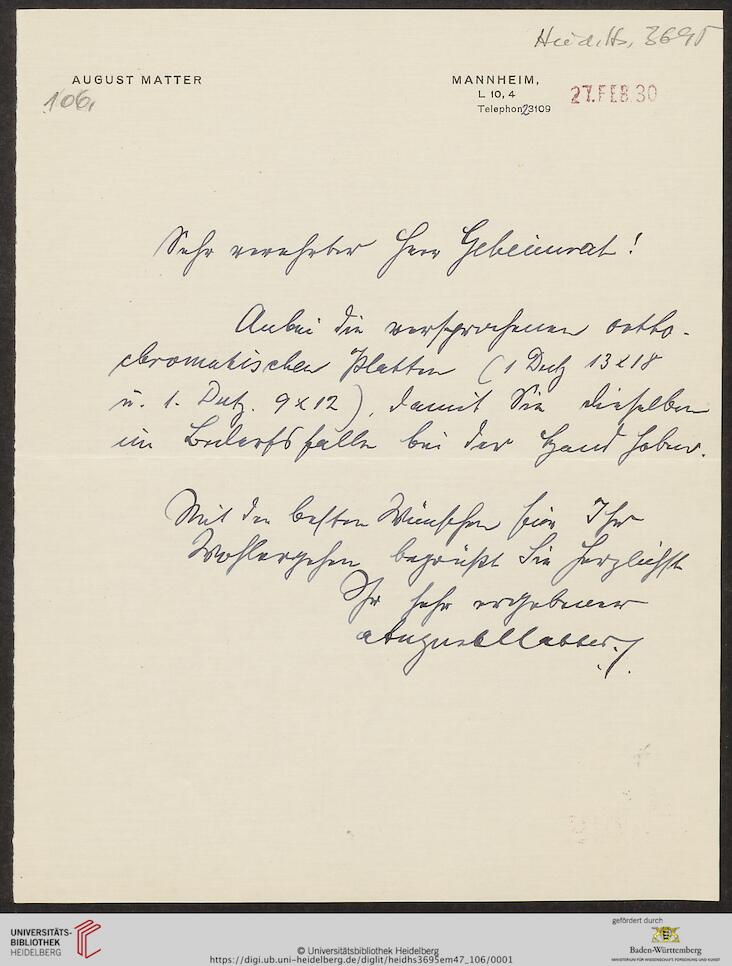 Heid. Hs. 3695
AUGUST MATTER
MANNHEIM,
106.
L 10, 4
27. FEB. 30
Telephon 23109
Sehr verehrter Herr Geheimrat!
Anbei die versprochenen ortho-
chromatischen Platten (1 Dutz 13x18
u. 1. Dutz. 9x12), damit Sie dieselben
im Bedarfsfalle bei der Hand haben.
Mit den besten Wünschen für Ihr
Wohlergehen begrüßt Sie herzlichst
Ihr sehr ergebener
August Matter.
UNIVERSITÄTS-
BIBLIOTHEK
HEIDELBERG
© Universitätsbibliothek Heidelberg
https://digi.ub.uni-heidelberg.de/diglit/heidhs3695em47_106/0001
gefördert durch
Baden-Württemberg
MINISTERIUM FÜR WISSENSCHAFT, FORSCHUNG UND KUNST